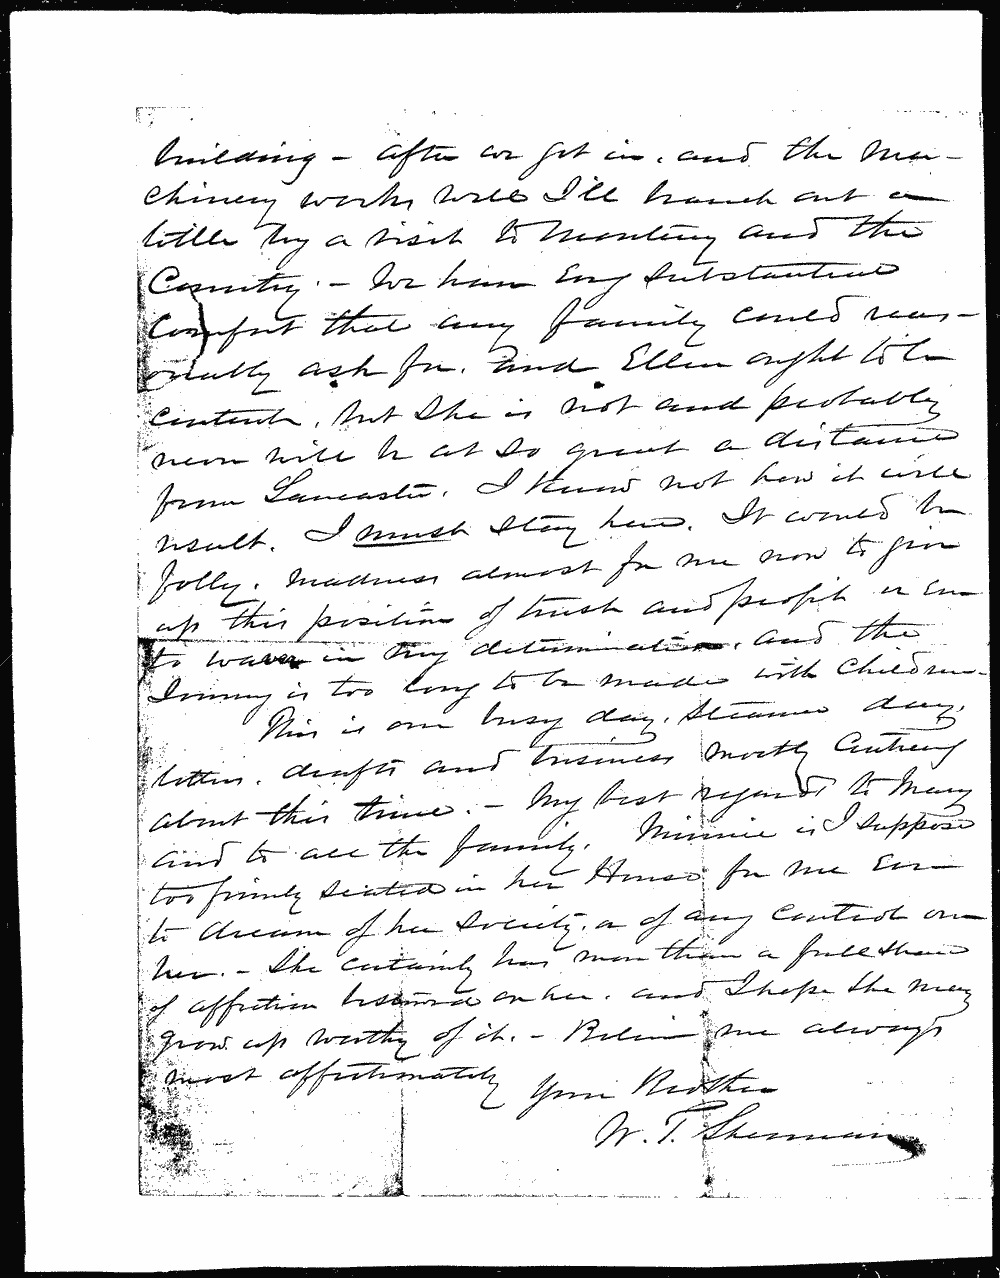 building - after we get in, and the ma-
chinery works well I'll branch out a
little by a visit to Monterey and the
Country. - We have every substantial
Comfort that any family could reas-
onably ask for, and Ellen ought to be
content, but she is not and probably
never will be at so great a distance
from Lancaster. I know not how it will
result. I must stay here. It would be
folly, madness almost for me now to give
up this position of trust and profit or even
to waver in my determination, and the
Journey is too long to be made with children.
This is our busy day, steamer day,
letters, drafts and business mostly Centering
about this time. - My best regards to Mary
and to all the family. Minnie is I suppose
too firmly seated in her House for me even
to dream of her Society, or of any control over
her. - She certainly has more than a full share
of affection bestowed on her, and I hope she may
grow up worthy of it. - Believe me always
most affectionately
Your Brother
W. T. Sherman